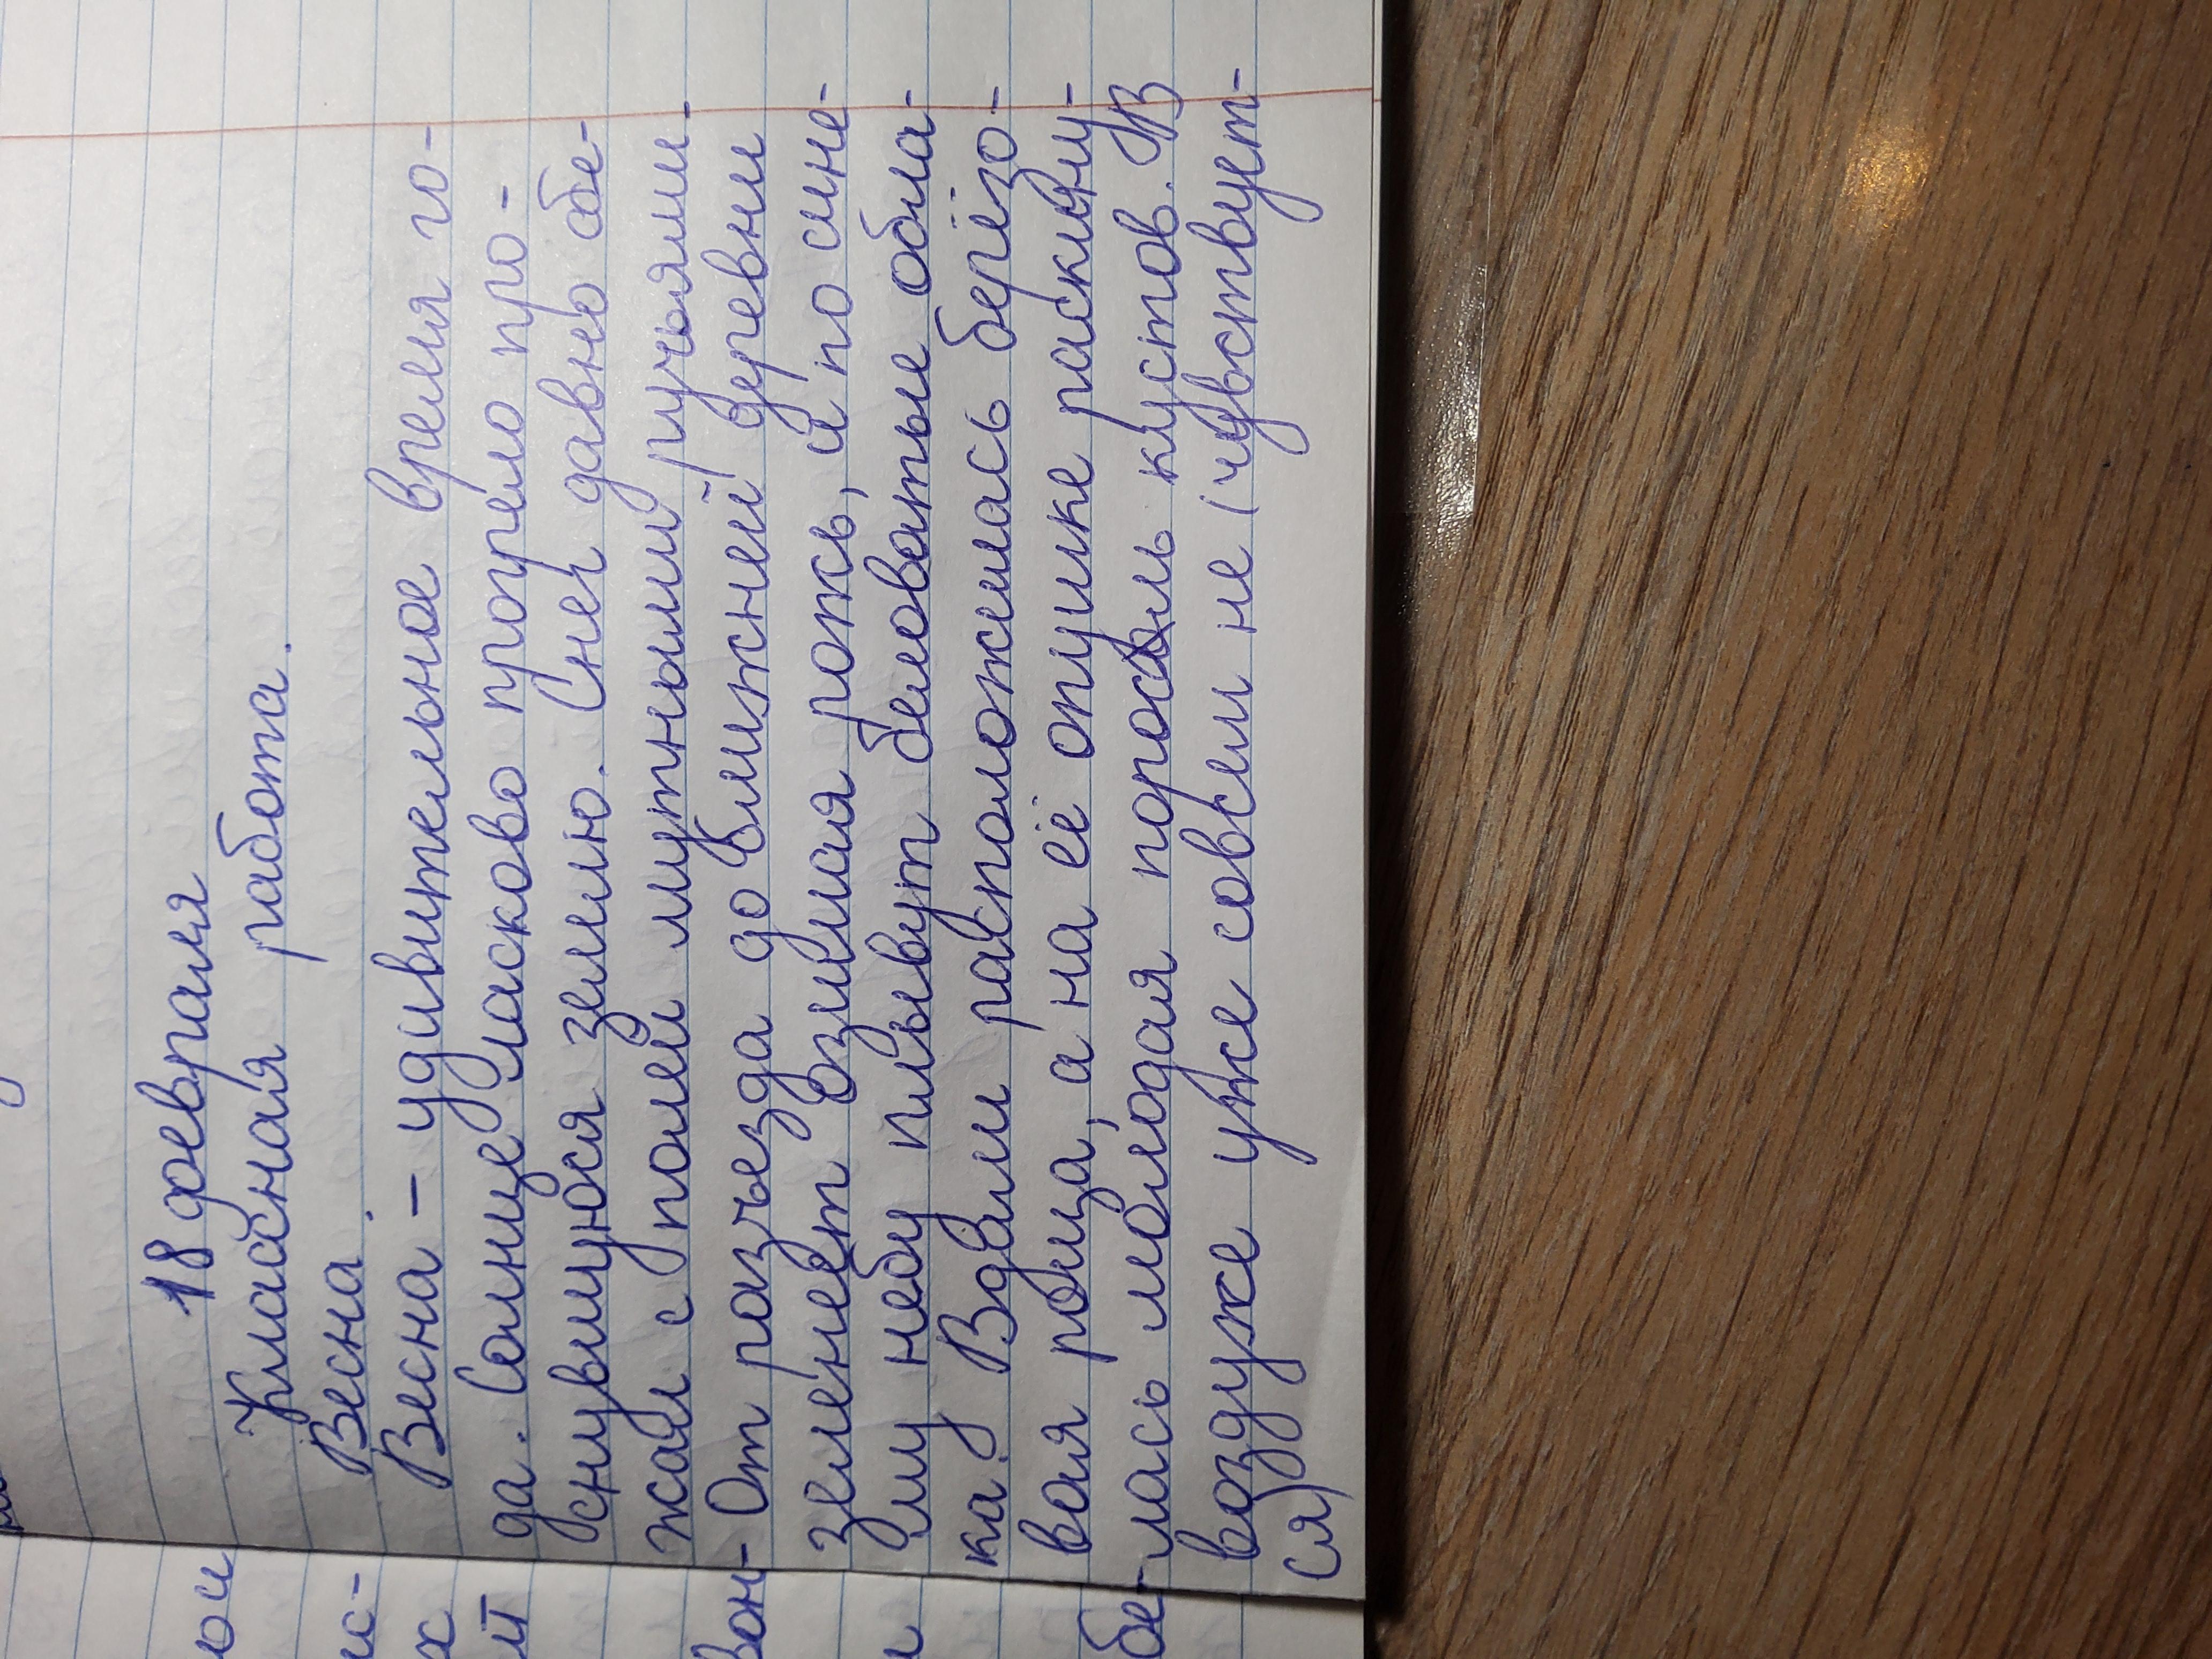 18 февраля
Классная работа.
Весна.
Весна – удивительное время го-
да. Солнце ласково прогрело про-
снувшуюся землю. Снег давно сбе-
жал с полей мутными ручьями.
От разъезда до ближней деревни
зеленеет озимая рожь, и по сине-
му небу плывут беловатые обла-
ка. Вдали расположилась берёзо-
вая роща, а на её опушке раскину-
лась молодая поросль кустов. В
воздухе уже совсем не (чувствует-
ся)
ои
ис-
х
 й
вон-
и
бе-